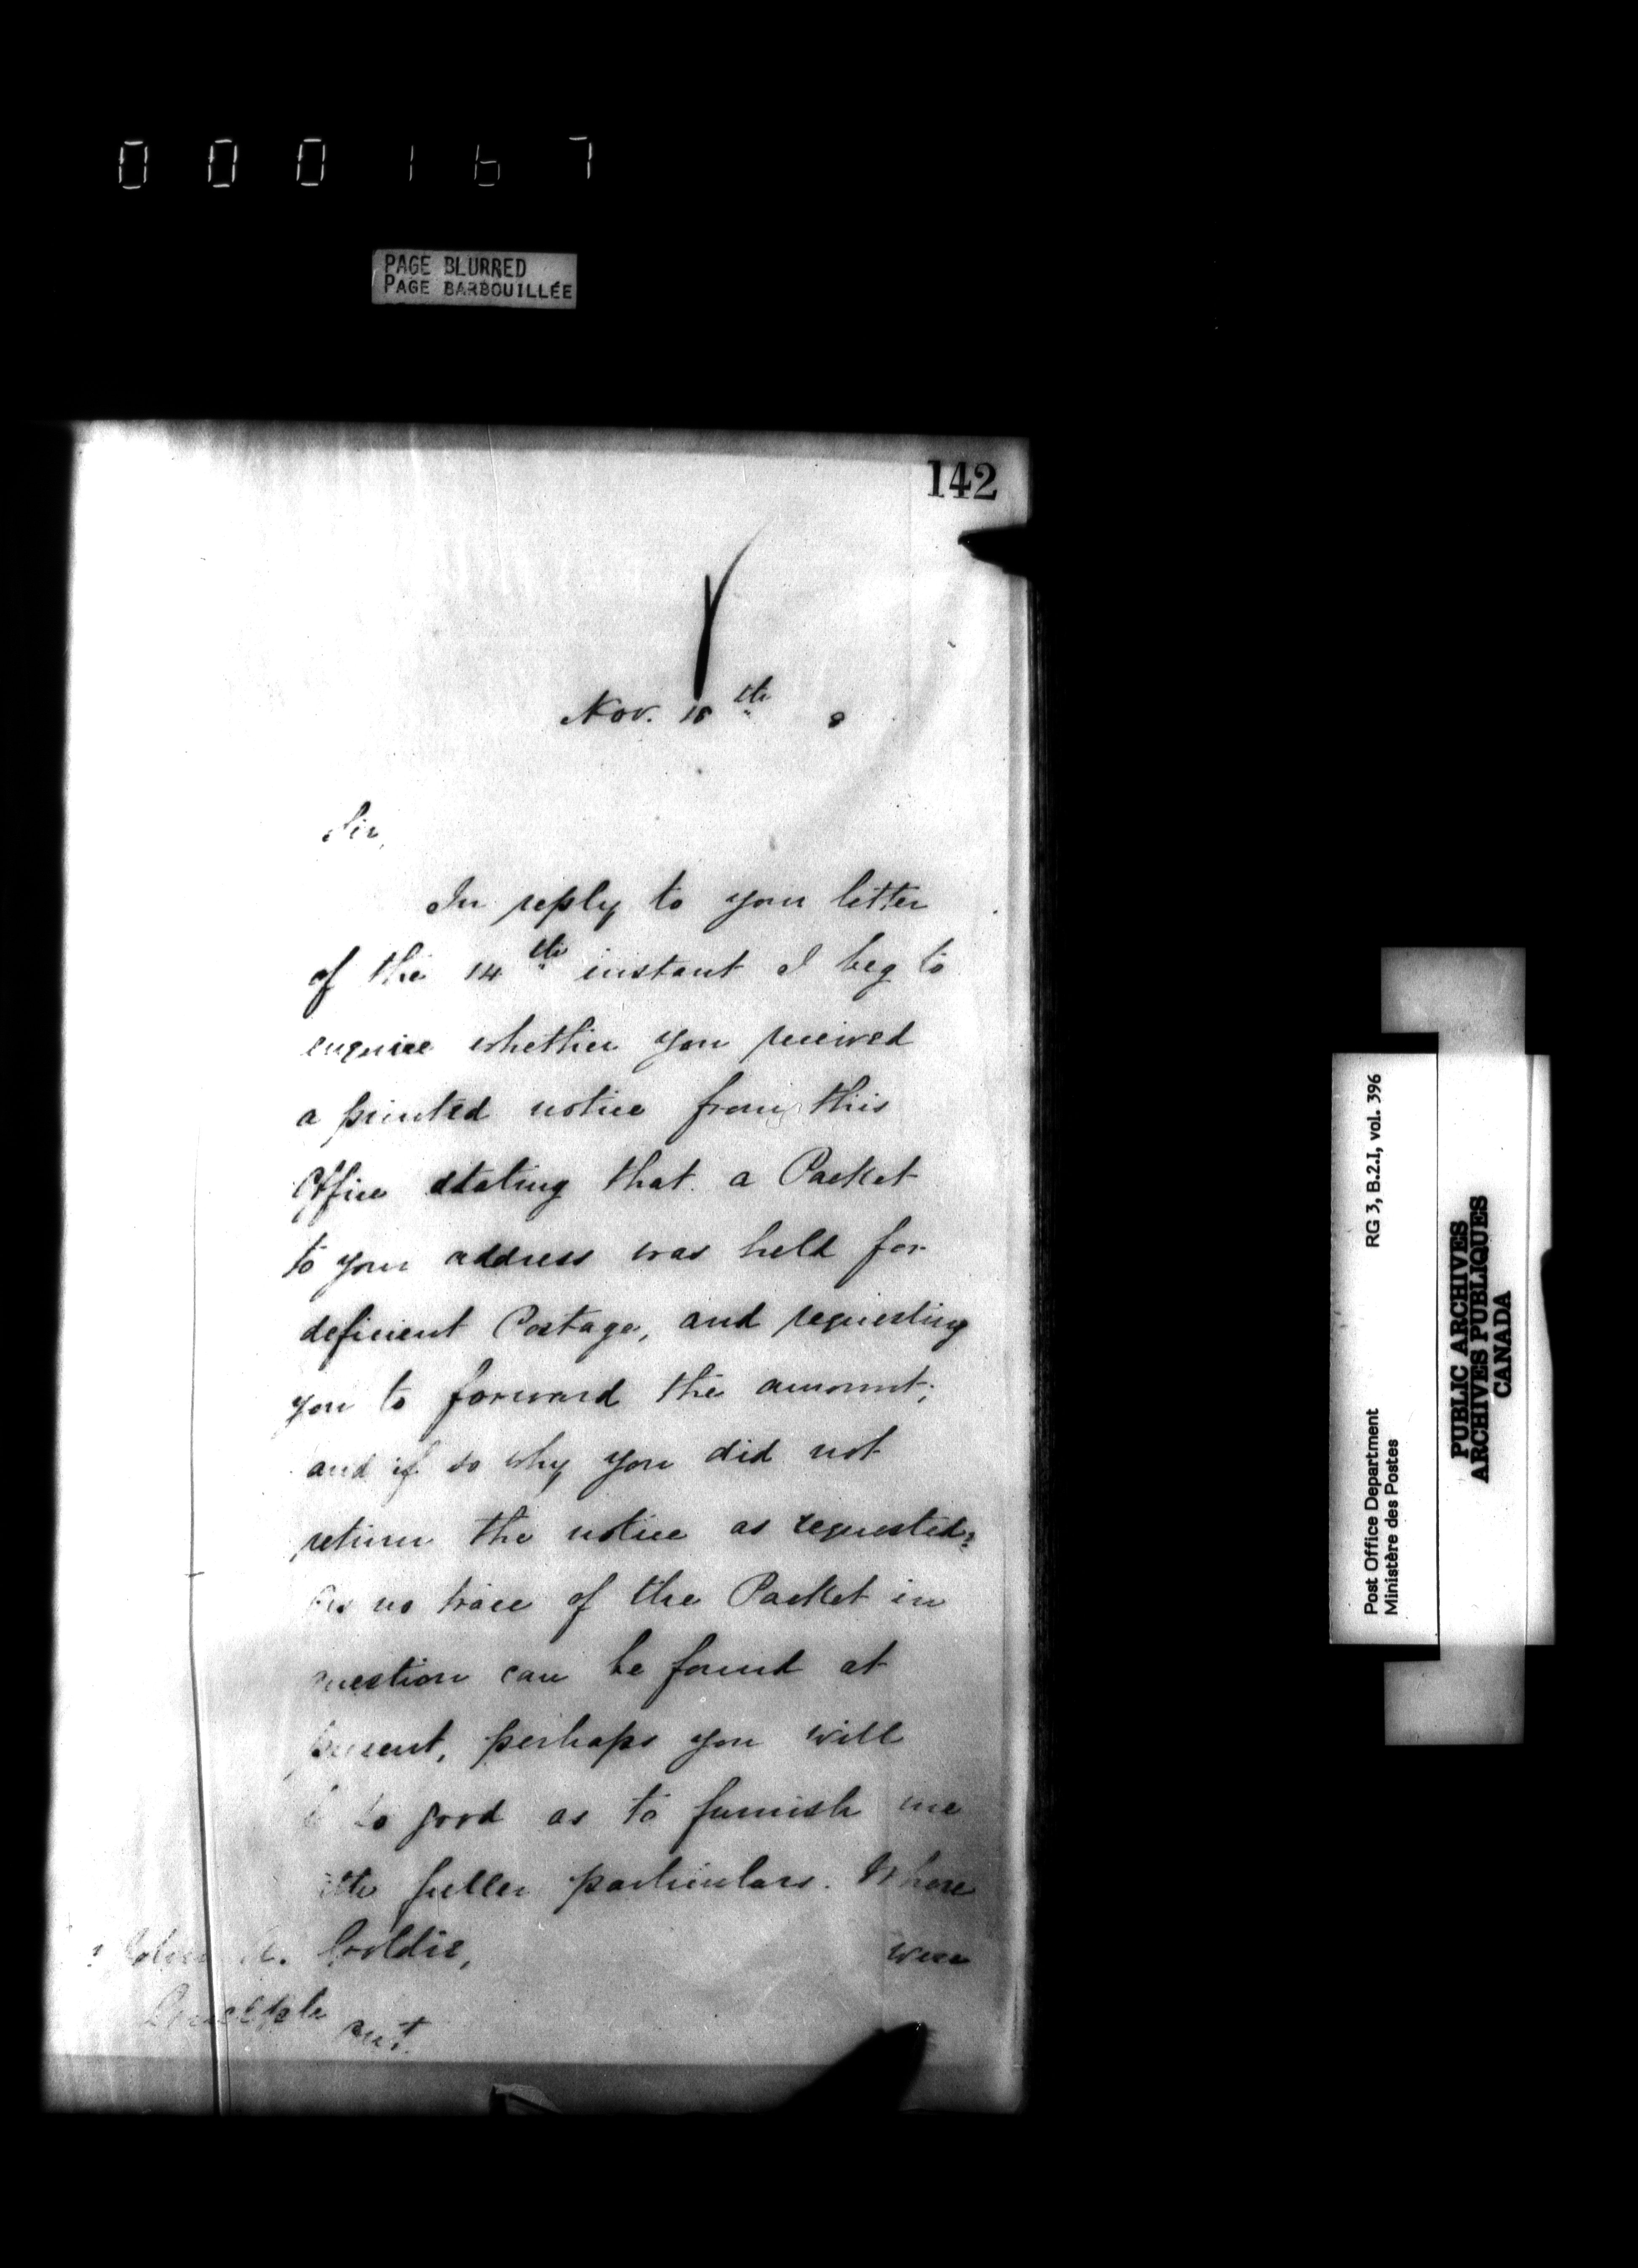 000167
PAGE BLURRED
PAGE BARBOUILLÉE
142
Nov. 18th 8
Sir,
In reply to your letter
of the 14th instant I beg to
enquire whether you received
a printed notice from this
Office stating that a Packet
to your address was held for
deficient Postage, and requesting
you to forward the amount;
and if so why you did not
return the notice as requested?
As no trace of the Packet in
question can be found at
present, perhaps you will
so good as to furnish me
fuller particulars. Where
A. Goldie, were
Ont.
Post Office Department RG 3, B.2.I, vol. 396
Ministère des Postes
PUBLIC ARCHIVES
ARCHIVES PUBLIQUES
CANADA